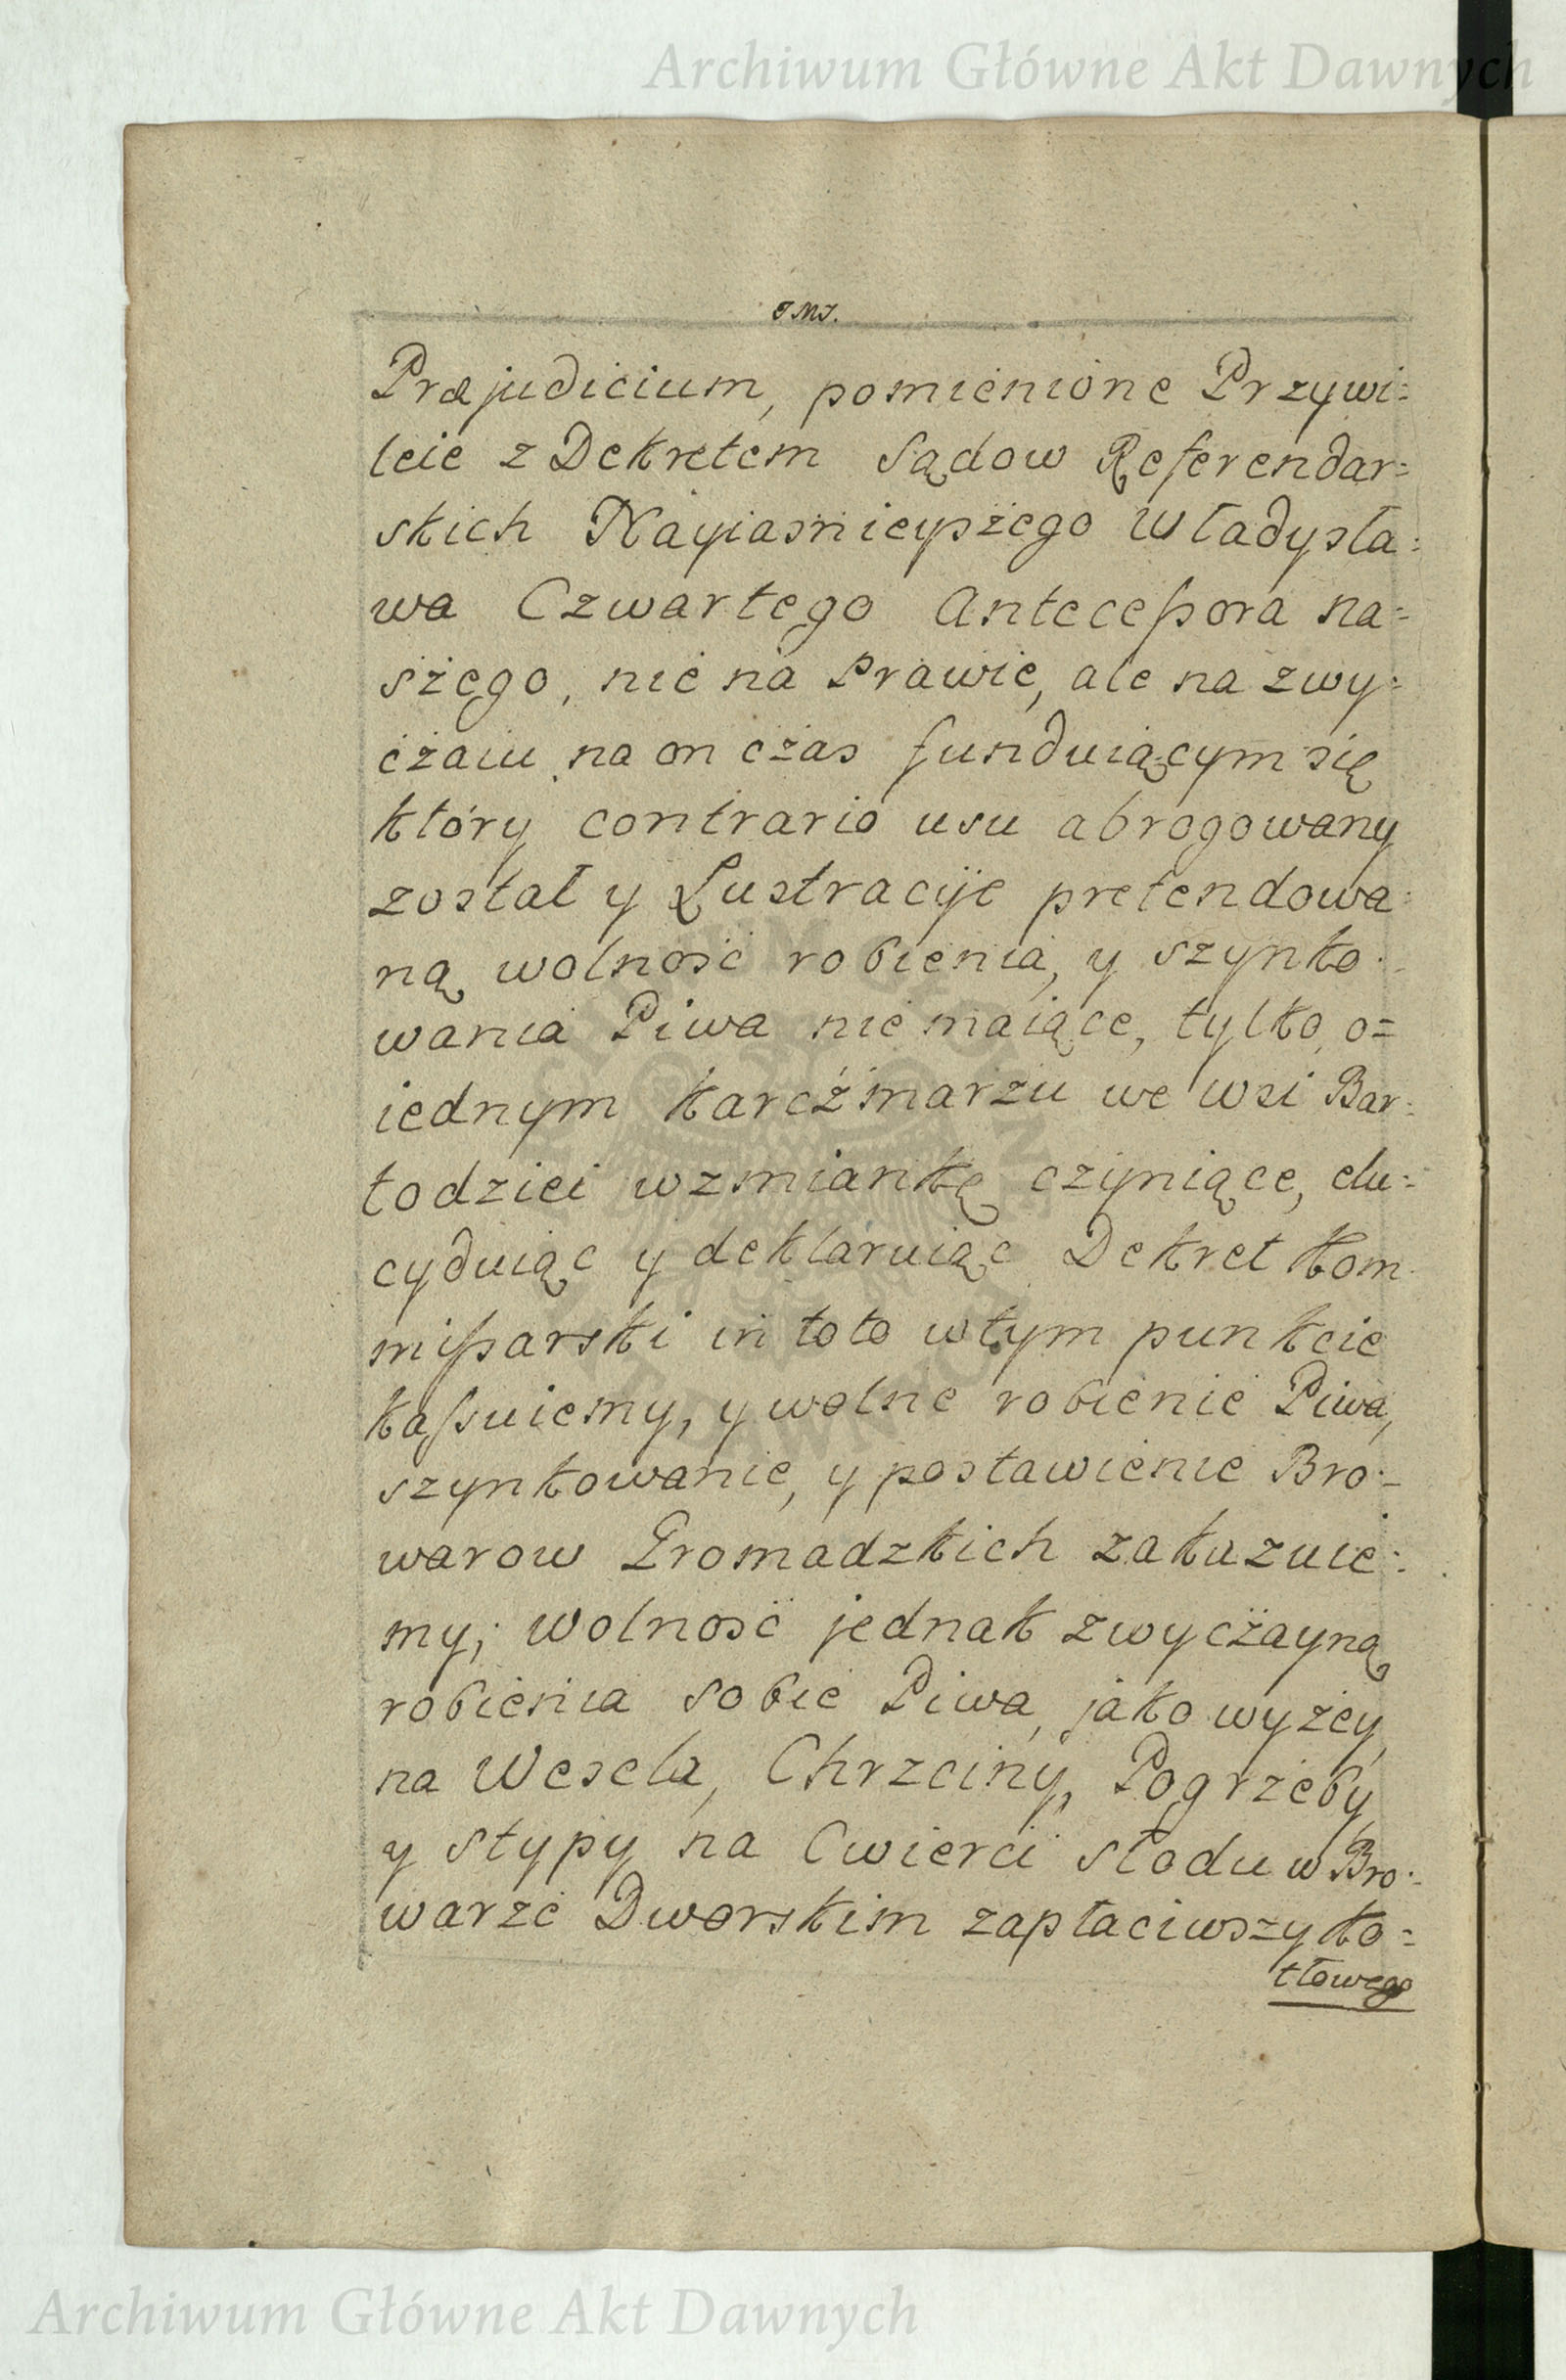 Archiwum Główne Akt Dawnych
JMJ.
Præjudicium, pomienione Przywi=
leie z Dekretem Sądow Referendar=
skich Nayiasnieyszego Władysła=
wa Czwartego Antecessora na=
szego, nie na Prawie, ale na zwy=
czaiu na on czas funduiącym się
który contrario usu abrogowany
został y Lustracije pretendowa=
ną wolność robienia, y szynko=
wania Piwa nie maiące, tylko o=
iednym karczmarzu we wsi Bar=
todziei wzmiankę czyniące, elu=
cyduiąc y deklaruiąc Dekret Kom=
missarski in toto w tym punkcie
kassuiemy, y wolne robienie Piwa,
szynkowanie, y postawienie Bro=
warow Gromadzkich zakazuie=
my; wolność jednak zwyczayną
robienia sobie Piwa, jako wyżey,
na Wesela, Chrzciny, Pogrzeby
y stypy na Cwierci słodu w Bro=
warze Dworskim zapłaciwszy ko=
tłowego
Archiwum Główne Akt Dawnych